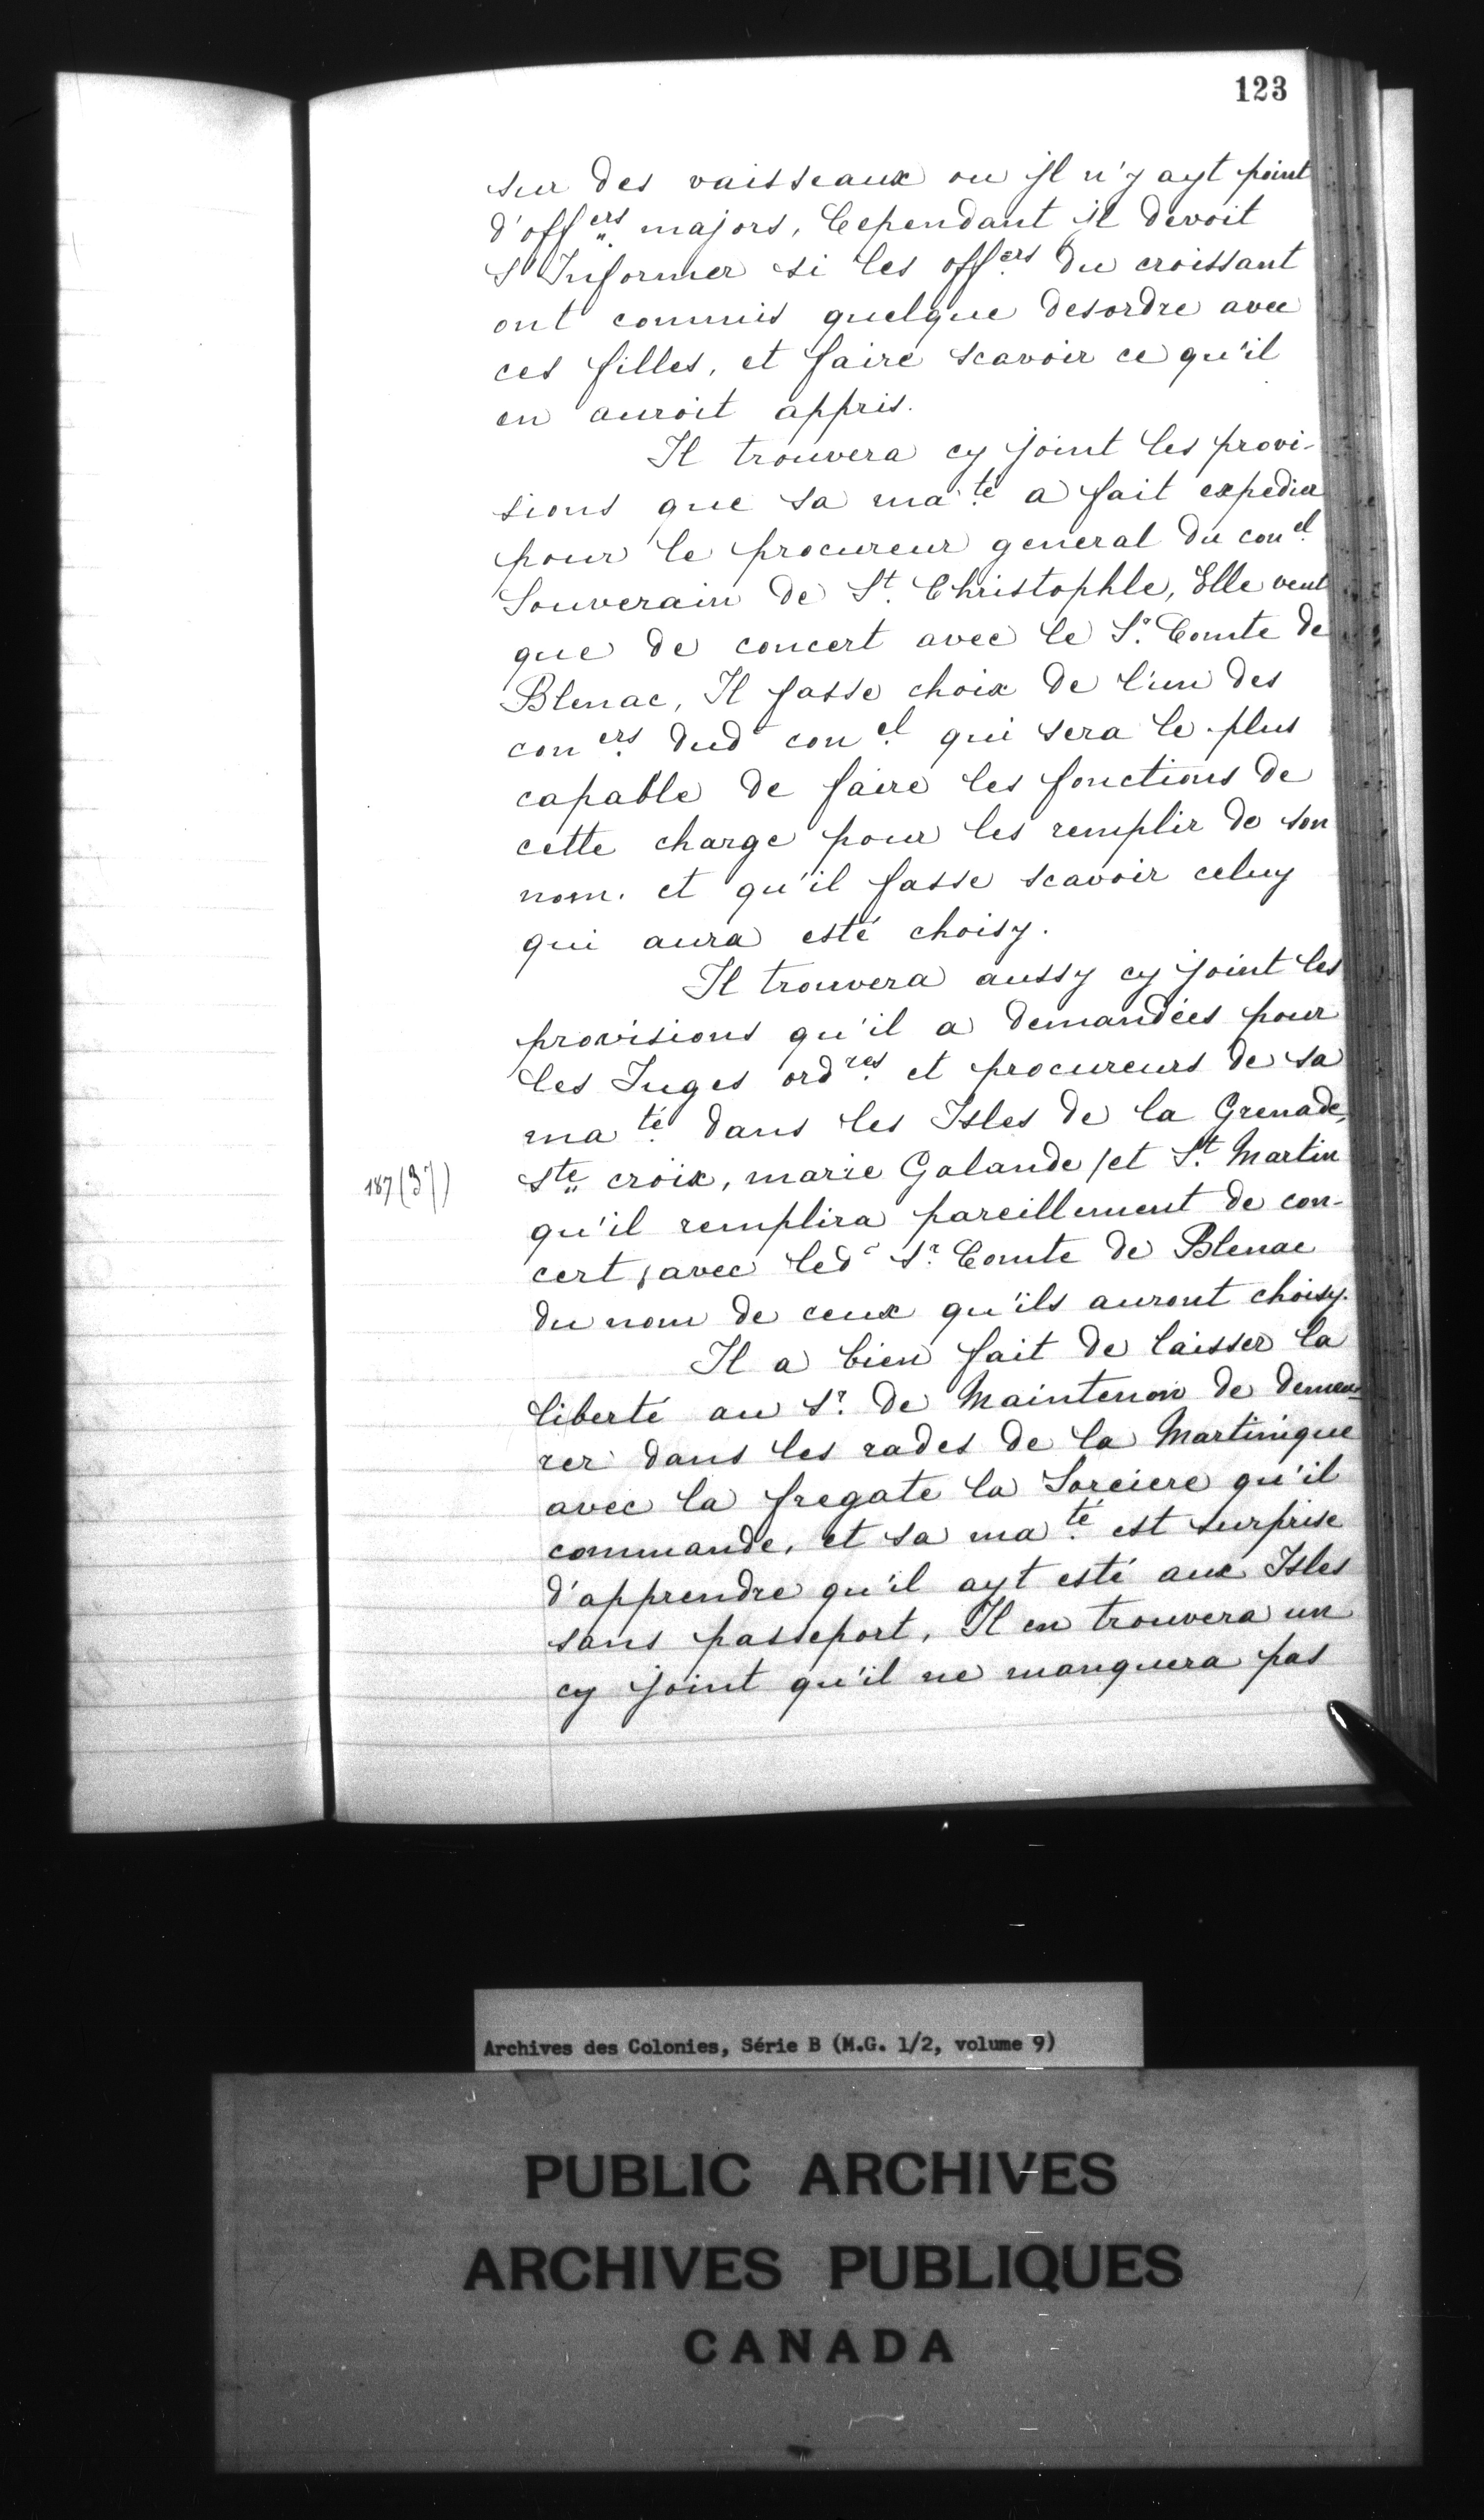 123
sur des vaisseaux ou jl n'y ayt point
d'offers majors, Cependant il devoit
s'Informer si les offers du croissant
ont commis quelque desordre avec
ces filles, et faire scavoir ce qu'il
en auroit appris.
Il trouvera cy joint les provi-
sions que sa maté a fait expedier
pour le procureur general du conel
Souverain de St. Christophle, Elle veut
que de concert avec le Sr. Comte de
Blenac, Il fasse choix de l'un des
coners dud conel qui sera le plus
capable de faire les fonctions de
cette charge pour les remplir de son
nom. et qu'il fasse scavoir celuy
qui aura esté choisy.
Il trouvera aussy cy joint les
provisions qu'il a demandées pour
les Juges ordres et procureurs de sa
maté dans les Isles de la Grenade,
187 (37) ste croix, marie Galande / et St. Martin
qu'il remplira pareillement de con-
cert, avec led Sr. Comte de Blenac
du nom de ceux qu'ils auront choisy.
Il a bien fait de laisser la
liberté au Sr. de Maintenon de demeu-
rer dans les rades de la Martinique
avec la fregate la Sorciere qu'il
commande, et sa maté est surprise
d'apprendre qu'il ayt esté aux Isles
sans passeport, Il en trouvera un
cy joint qu'il ne manquera pas
Archives des Colonies, Série B (M.G. 1/2, volume 9)
PUBLIC ARCHIVES
ARCHIVES PUBLIQUES
CANADA